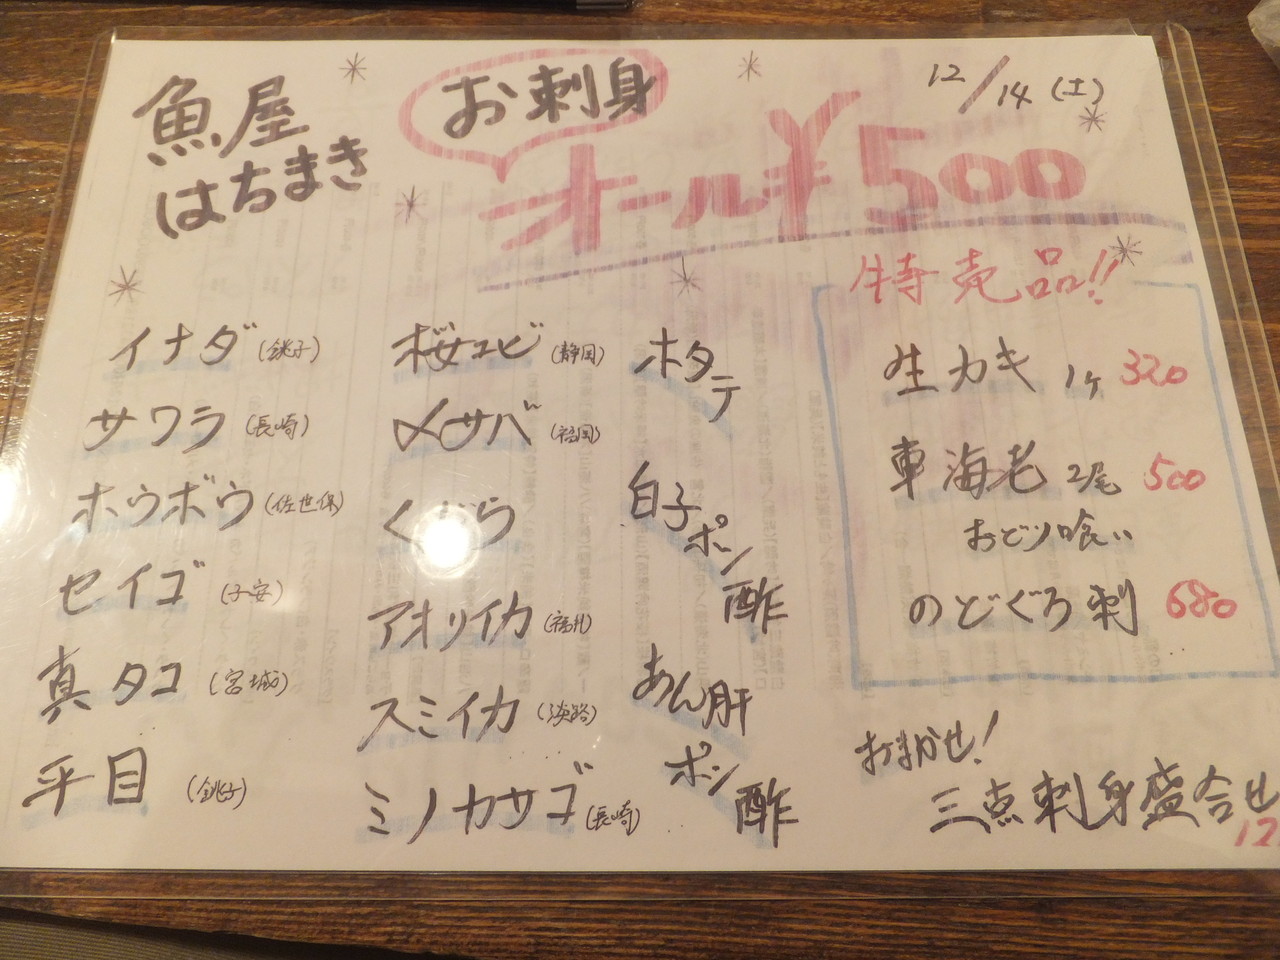 12/14(土)
魚屋
はちまき
お刺身
オール¥500
イナダ(銚子)
サワラ(長崎)
ホウボウ(佐世保)
セイゴ(子安)
真タコ(宮城)
平目(銚子)
桜エビ(静岡)
〆サバ(福岡)
くじら
アオリイカ(福井)
スミイカ(淡路)
ミノカサゴ(長崎)
ホタテ
白子ポン酢
あん肝ポン酢
特売品!!
生カキ 1ヶ 320
車海老 2尾 500
おどり喰い
のどぐろ刺 680
おまかせ!
三点刺身盛合せ